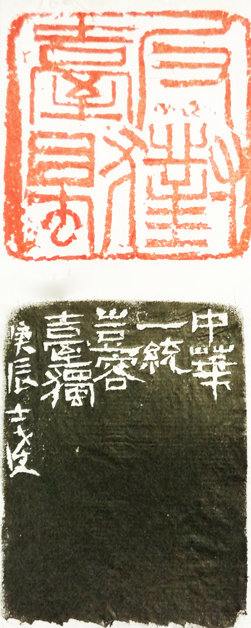 反對
臺獨
中華
一統
豈容
臺獨
庚辰